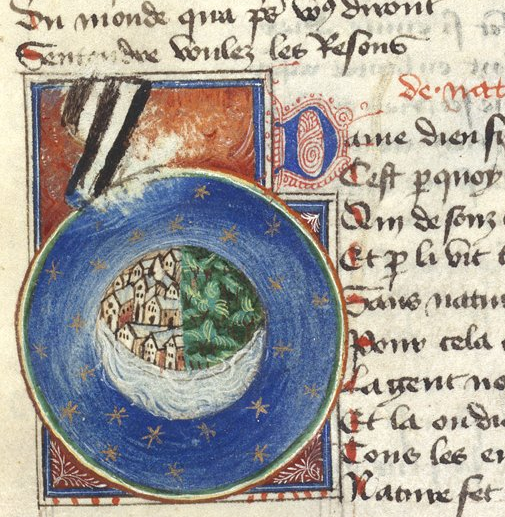 Du monde qua ps vo9 diront
Sentendre voulez les Resons
de nat
Dame dieu
Cest pquoy
Qui de souz
Et p li vit
Sans natur
Pour cela
La gent no
Et la ondi
Tous les
Nature fet